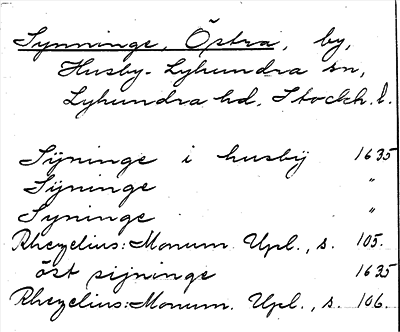 Synninge, Östra, by,
Husby-Lyhundra sn,
Lyhundra hd, Stockh. l.
Sÿninge i husbÿ 1635
Sÿninge "
Syninge "
Rhezelius: Monum. Upl., s. 105.
öst sijninge 1635
Rhezelius: Monum. Upl., s. 106.